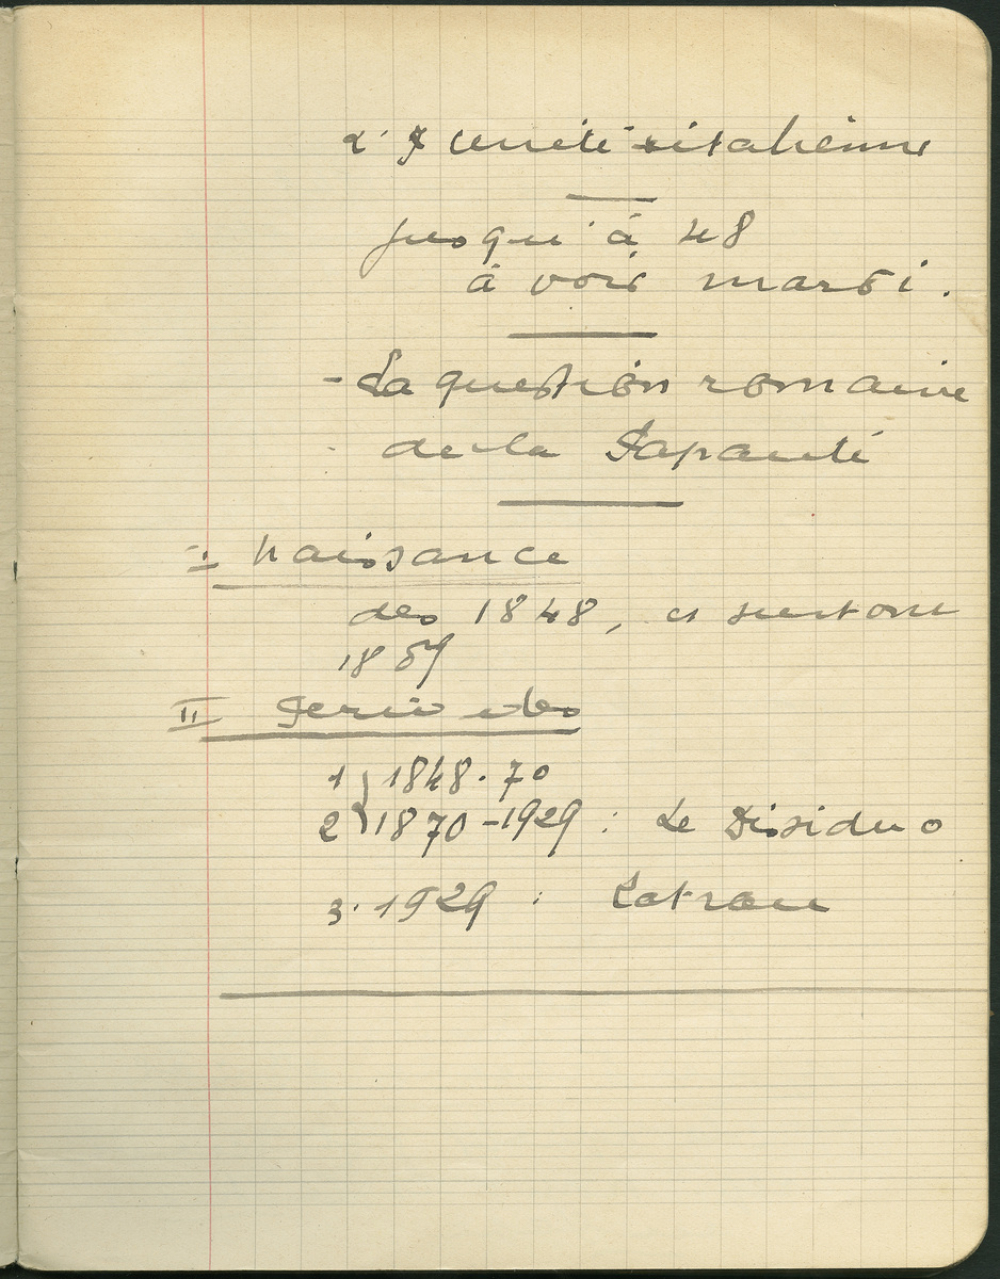 L'unité italienne
jusqu'à 48
à voir mardi.
- La question romaine
de la Papauté
I Naissance
dès 1848, et surtout
1859
II Périodes
1) 1848-70
2) 1870-1929 : Le Dissidio
3. 1929 : Latran